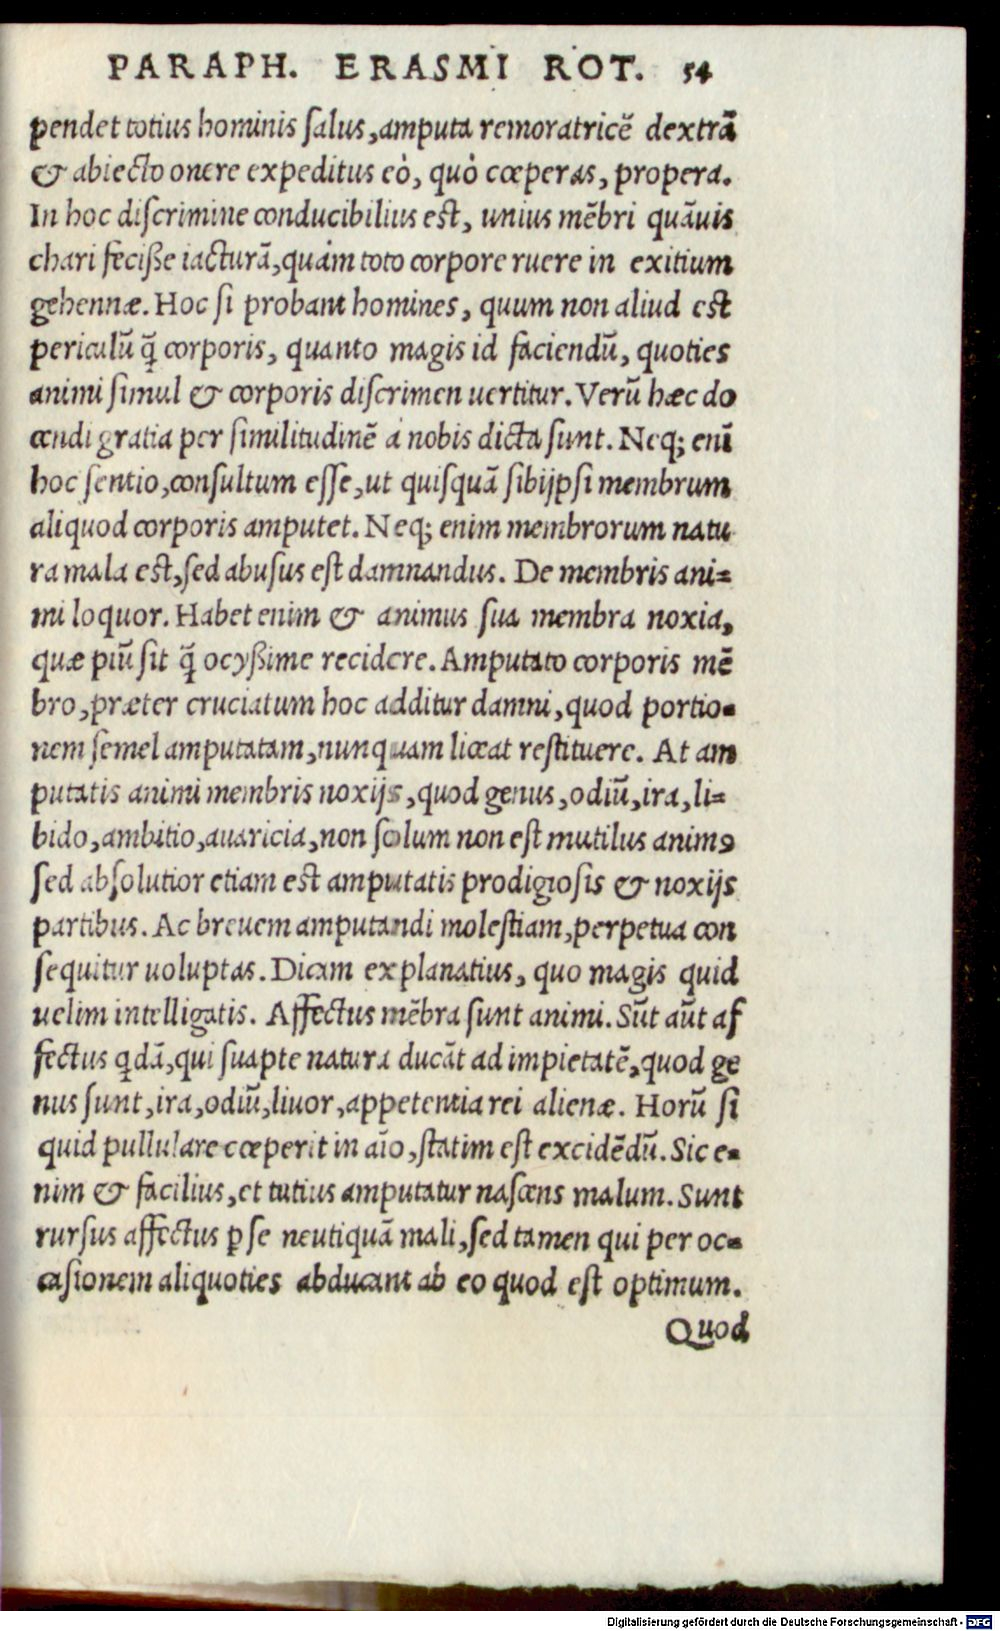 PARAPH. ERASMI ROT. 54
pendet totius hominis ſalus, amputa remoratricẽ dextrã
& abiecto onere expeditus eò, quò cœperas, propera.
In hoc diſcrimine conducibilius est, unius mẽbri quãuis
chari feciſſe iacturã, quàm toto corpore ruere in exitium
gehennæ. Hoc ſi probant homines, quum non aliud est
periculũ q̃ corporis, quanto magis id faciendũ, quoties
animi ſimul & corporis diſcrimen uertitur. Verũ hæc do
cendi gratia per ſimilitudinẽ à nobis dicta ſunt. Neq; enĩ
hoc ſentio, conſultum eſſe, ut quiſquã ſibijpſi membrum
aliquod corporis amputet. Neq; enim membrorum natu
ra mala est, ſed abuſus eſt damnandus. De membris ani=
mi loquor. Habet enim & animus ſua membra noxia,
quæ piũ ſit q̃ ocyßime recidere. Amputato corporis mẽ
bro, præter cruciatum hoc additur damni, quod portio=
nem ſemel amputatam, nunquam liceat reſtituere. At am
putatis animi membris noxijs, quod genus, odiũ, ira, li=
bido, ambitio, auaricia, non ſolum non eſt mutilus animꝰ
ſed abſolutior etiam est amputatis prodigioſis & noxijs
partibus. Ac breuem amputandi moleſtiam, perpetua con
ſequitur uoluptas. Dicam explanatius, quo magis quid
uelim intelligatis. Affectus mẽbra ſunt animi. Sũt aũt af
fectus q̃dã, qui ſuapte natura ducãt ad impietatẽ, quod ge
nus ſunt, ira, odiũ, liuor, appetentia rei alienæ. Horũ ſi
quid pullulare cœperit in aĩo, ſtatim eſt excidẽdũ. Sic e=
nim & facilius, et tutius amputatur naſcens malum. Sunt
rurſus affectus ꝑ ſe neutiquã mali, ſed tamen qui per oc=
caſionem aliquoties abducant ab eo quod eſt optimum.
Quod
Digitalisierung gefördert durch die Deutsche Forschungsgemeinschaft - DFG